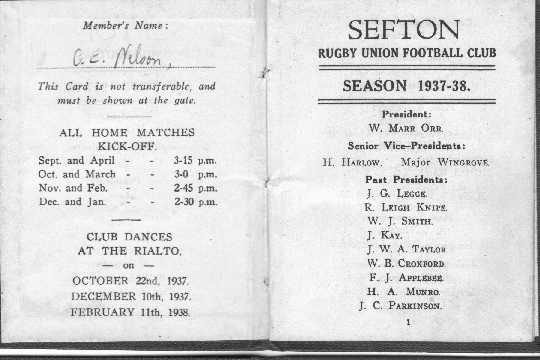 Member's Name:
O. E. Nelson,
This Card is not transferable, and
must be shown at the gate.
ALL HOME MATCHES
KICK-OFF.
Sept. and April - - 3-15 p.m.
Oct. and March - - 3-0 p.m.
Nov. and Feb. - - 2-45 p.m.
Dec. and Jan. - - 2-30 p.m.
CLUB DANCES
AT THE RIALTO,
— on —
OCTOBER 22nd, 1937.
DECEMBER 10th, 1937.
FEBRUARY 11th, 1938.
SEFTON
RUGBY UNION FOOTBALL CLUB
SEASON 1937-38.
President:
W. MARR ORR.
Senior Vice-Presidents:
H. HARLOW. Major WINGROVE.
Past Presidents:
J. G. LEGGE.
R. LEIGH KNIPE.
W. J. SMITH.
J. KAY.
J. W. A. TAYLOR
W. B. CROXFORD.
F. J. APPLEBEE.
H. A. MUNRO.
J. C. PARKINSON.
1